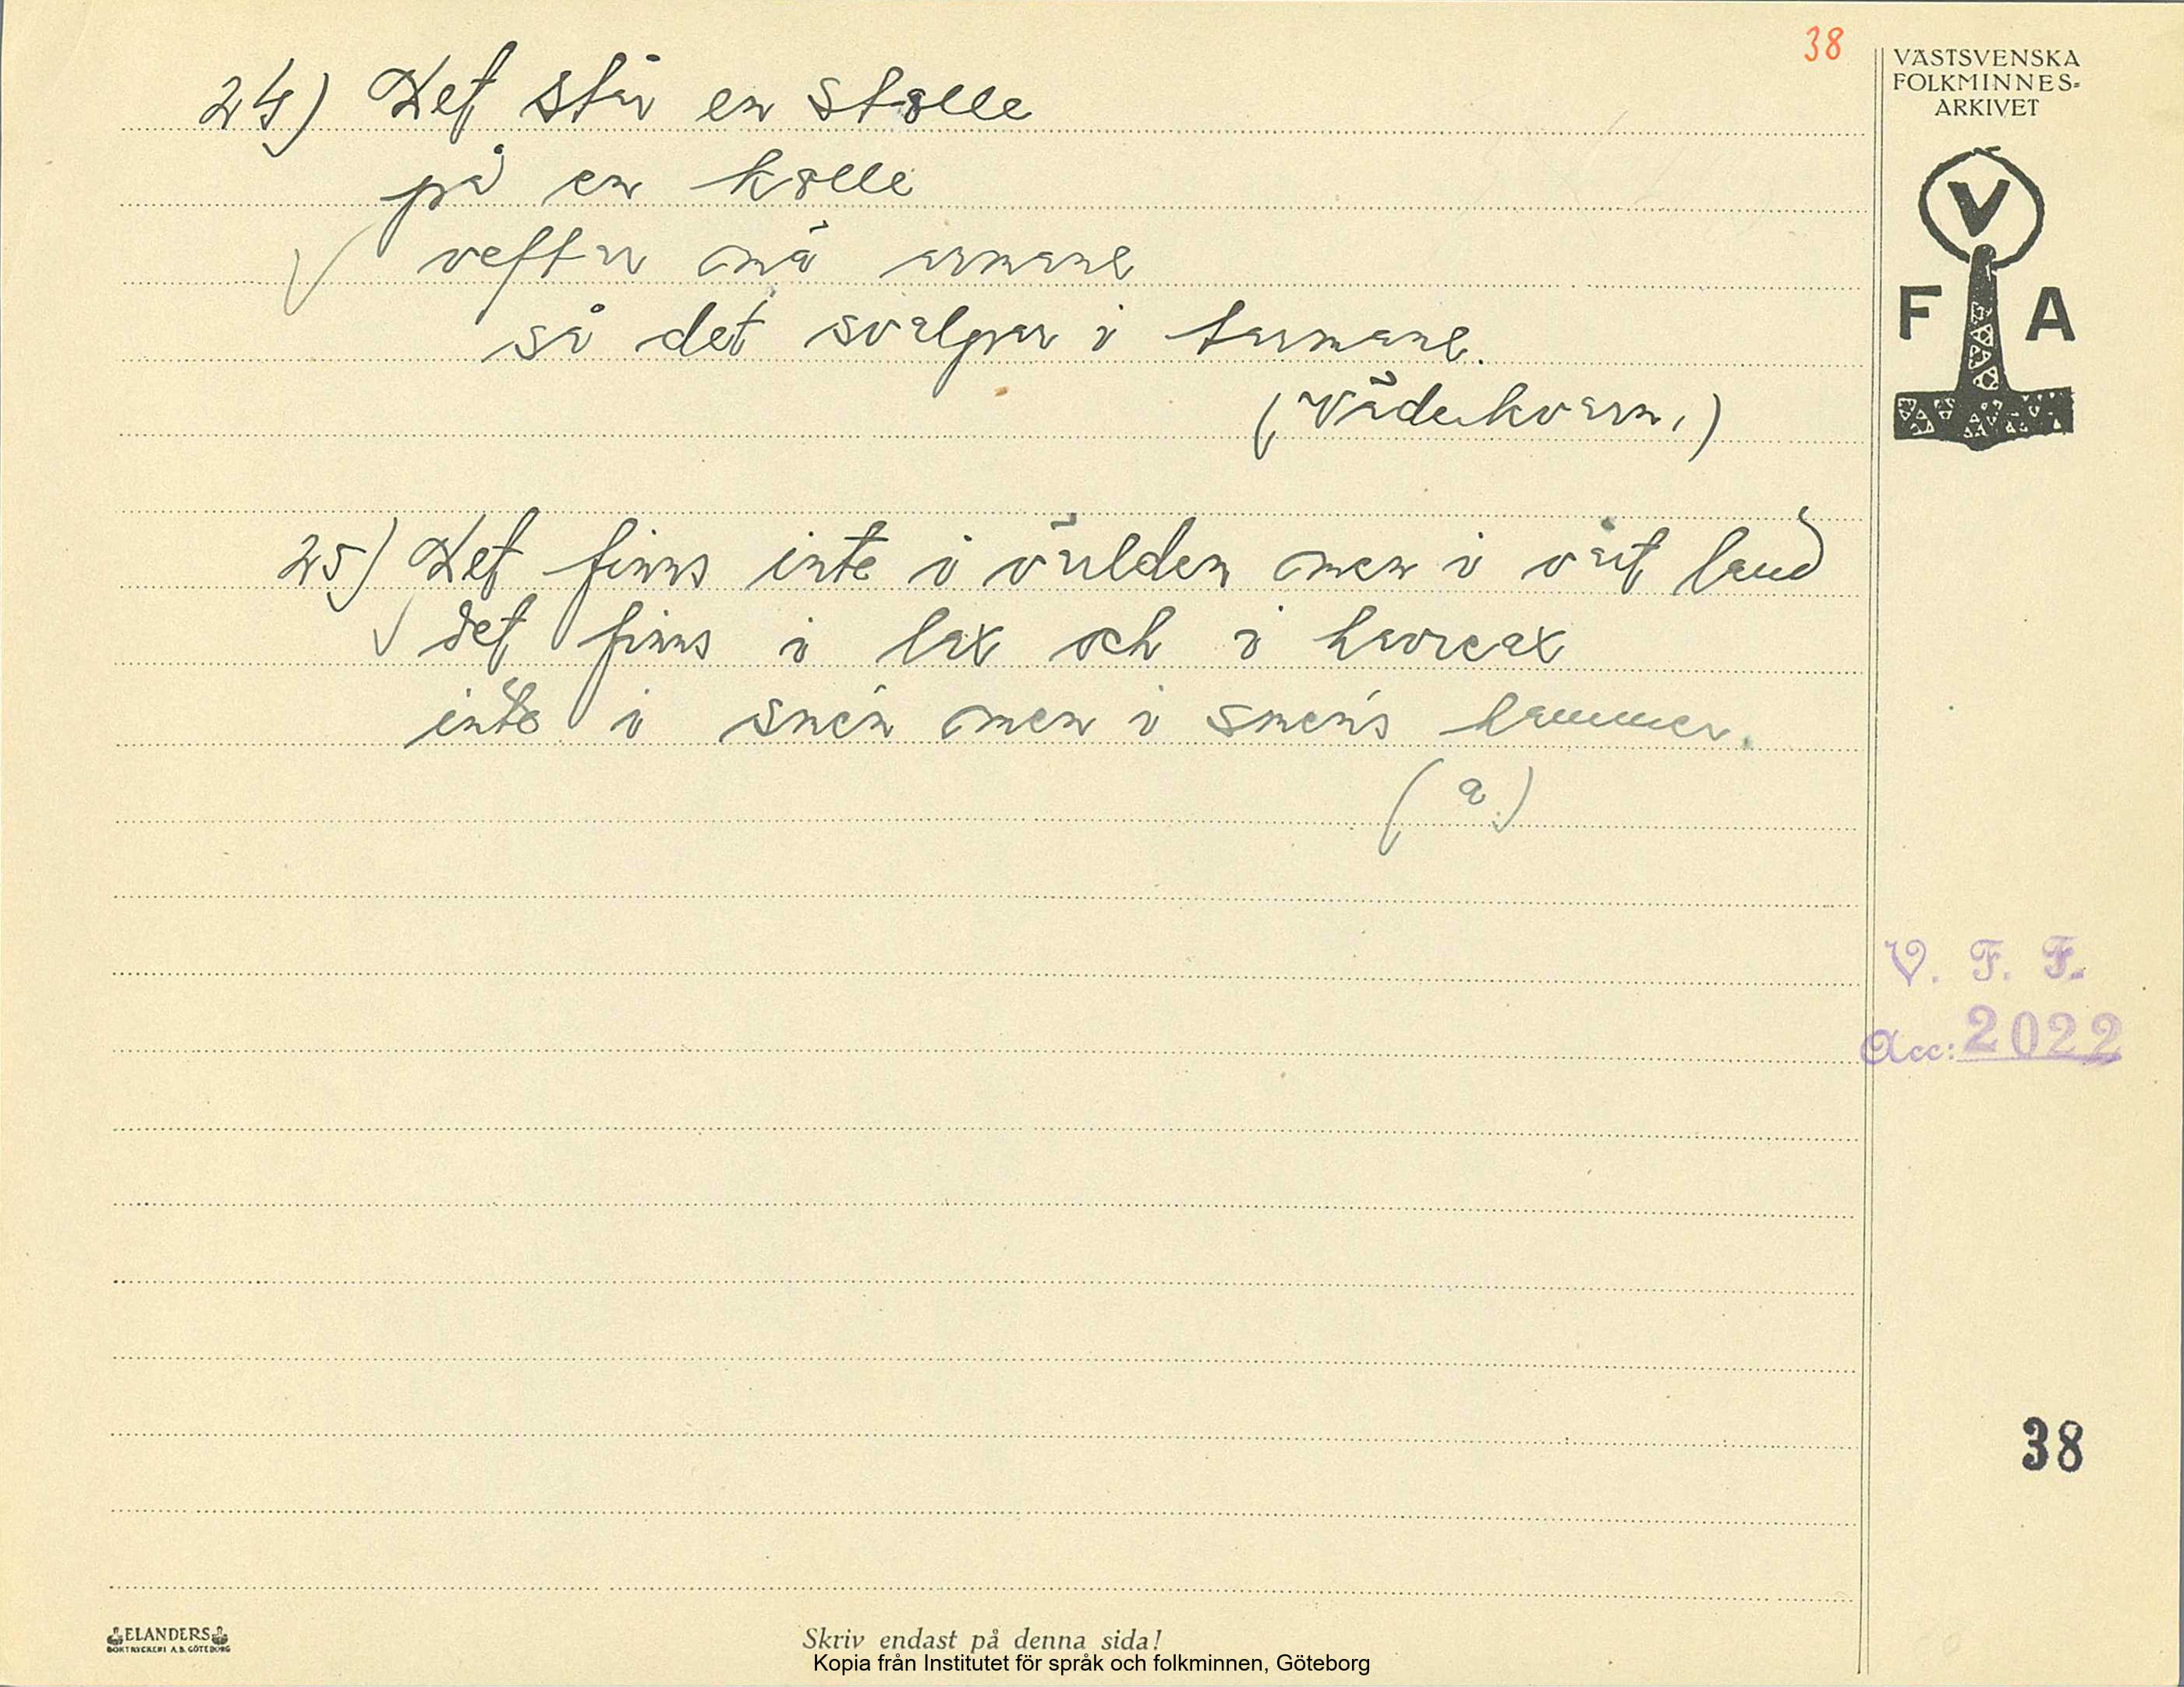 38
VÄSTSVENSKA
FOLKMINNES-
ARKIVET
V
F A
24) Det står en stolle
på en kolle
vefter mä armane
så det svalpar i tarmane.
(Väderkvarn.)
25) Det finns inte i världen men i vårt land
det finns i lax och i havreax
inte i smén men i sméns hammer.
(a.)
V. F. F.
Acc: 2022
38
ELANDERS
BOKTRYCKERI A.B. GÖTEBORG
Skriv endast på denna sida!
Kopia från Institutet för språk och folkminnen, Göteborg